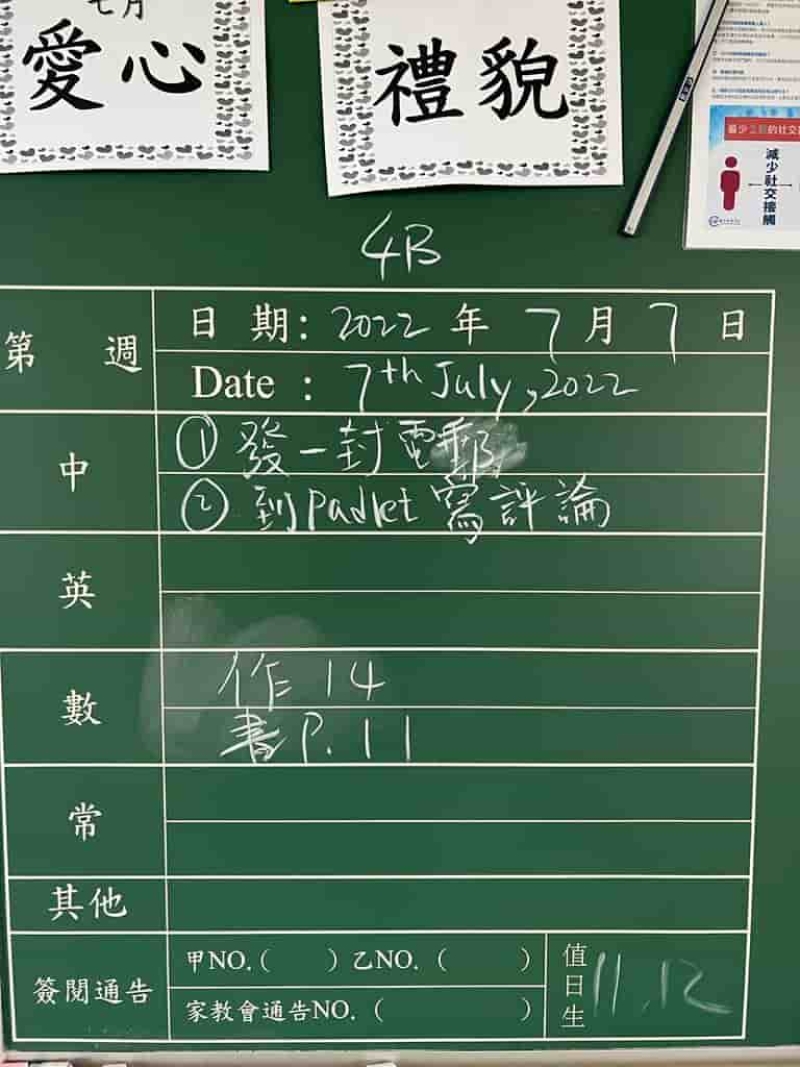 七月
愛心
禮貌
減少社交接觸
4B
第 週
日 期: 2022 年 7 月 7 日
Date : 7th July, 2022
中
① 發一封電郵
② 到 Padlet 寫評論
英
數
作 14
書 P. 11
常
其他
簽閱通告
甲NO. ( ) 乙NO. ( )
家教會通告NO. ( )
值日生
11, 12